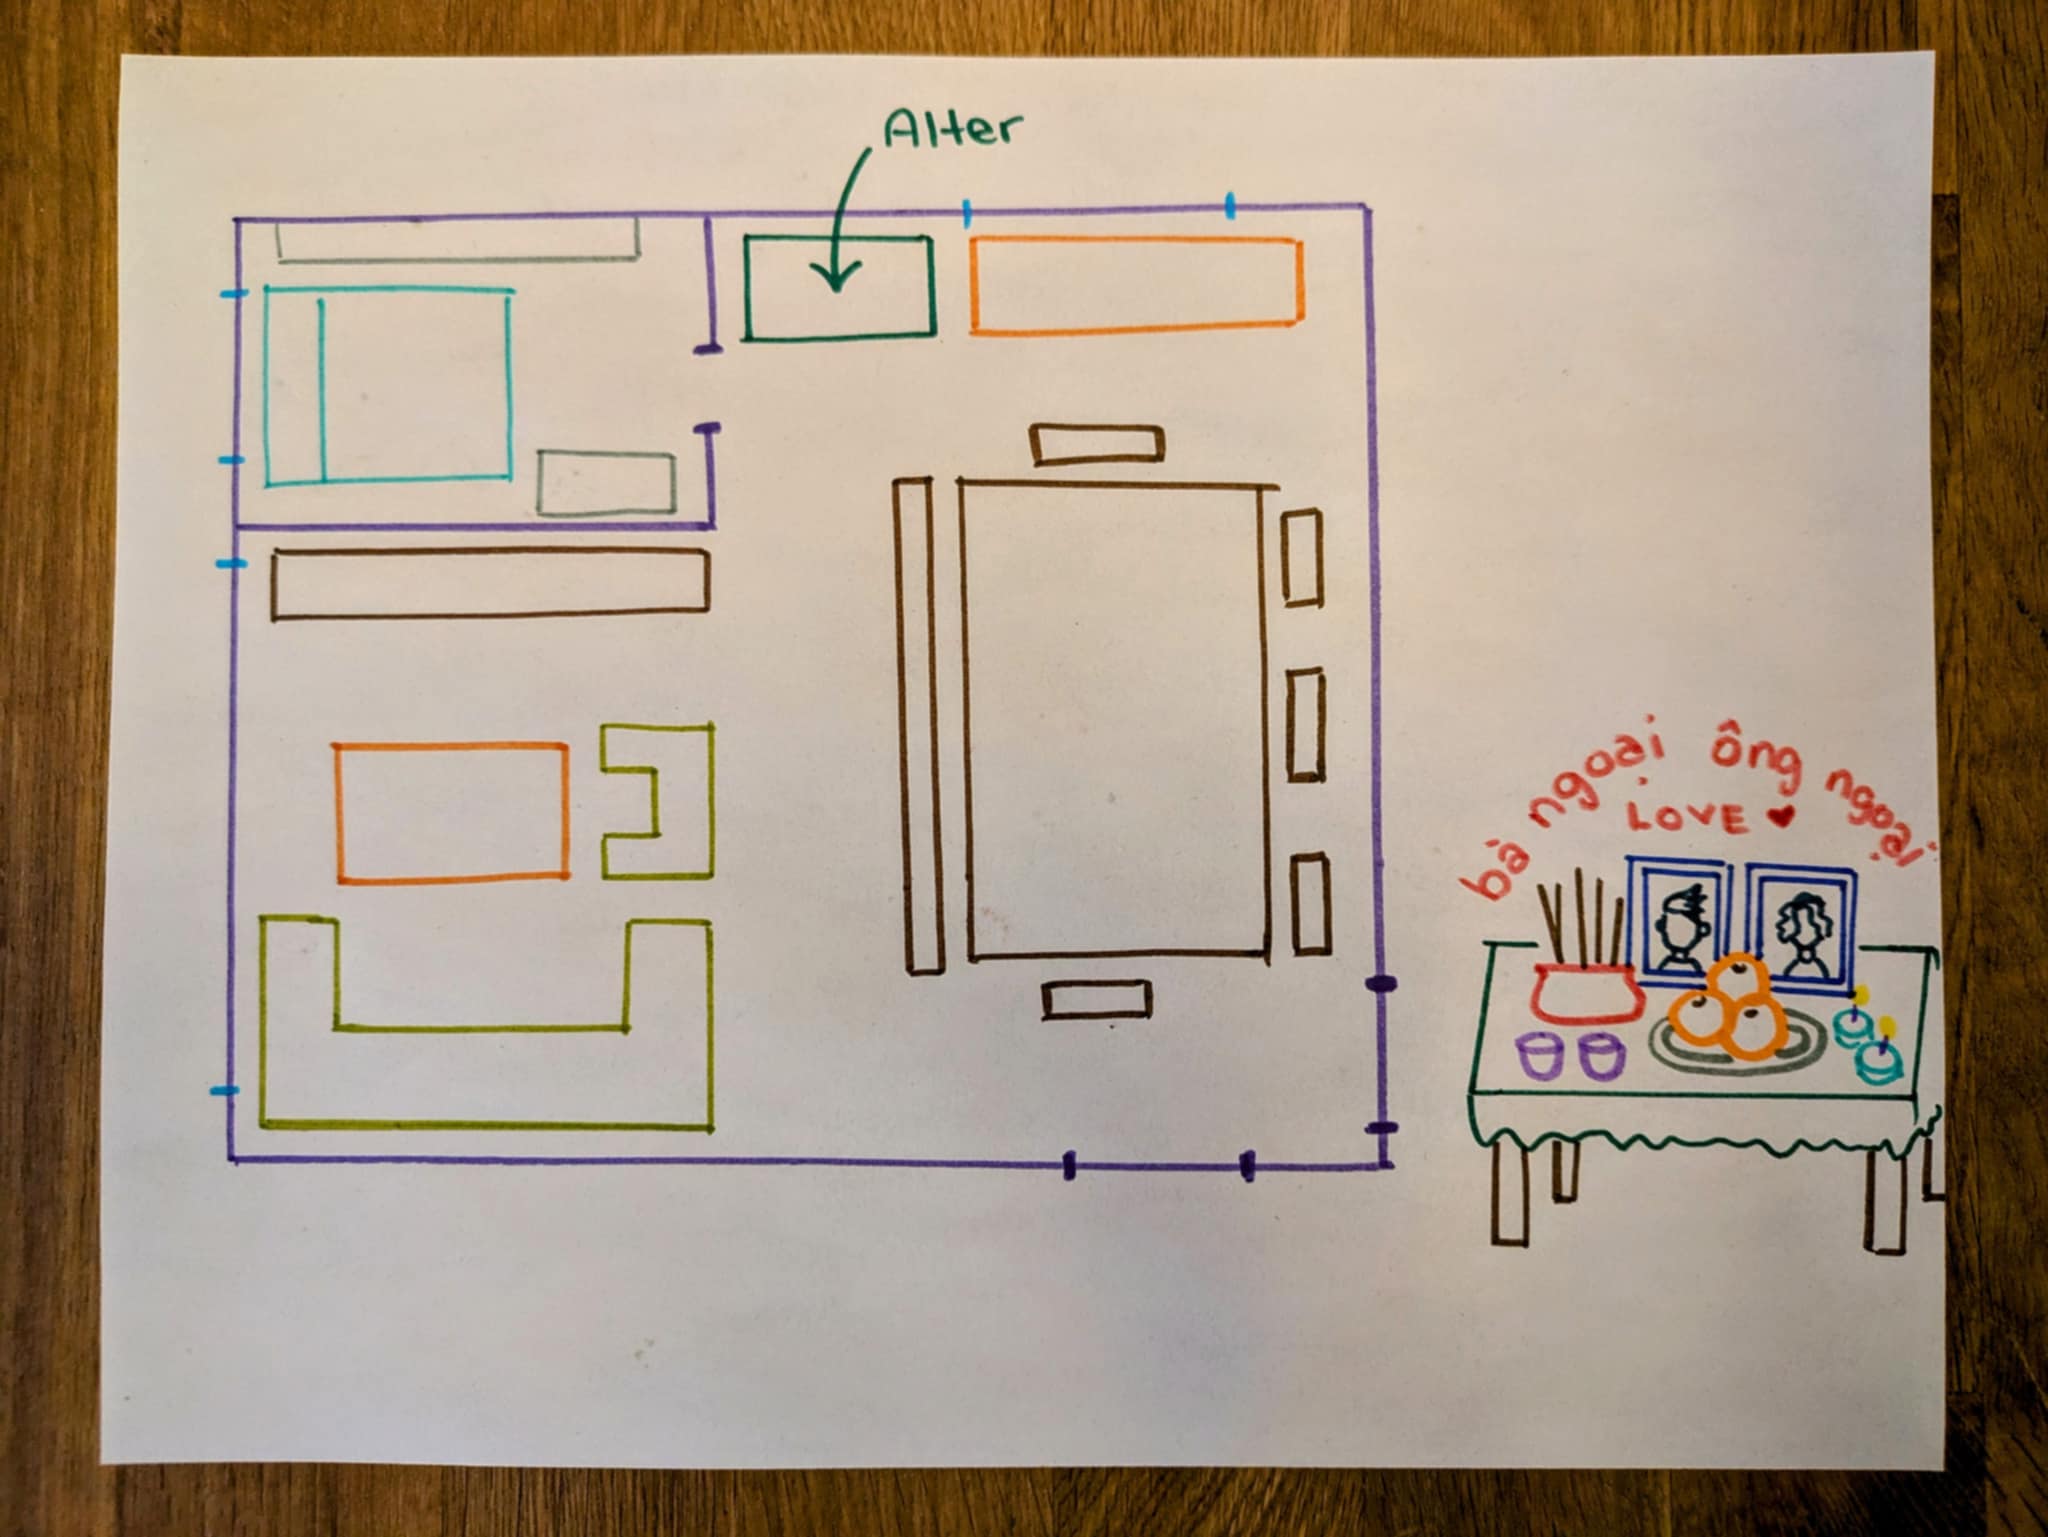 Alter
bà ngoại ông ngoại
LOVE ♥